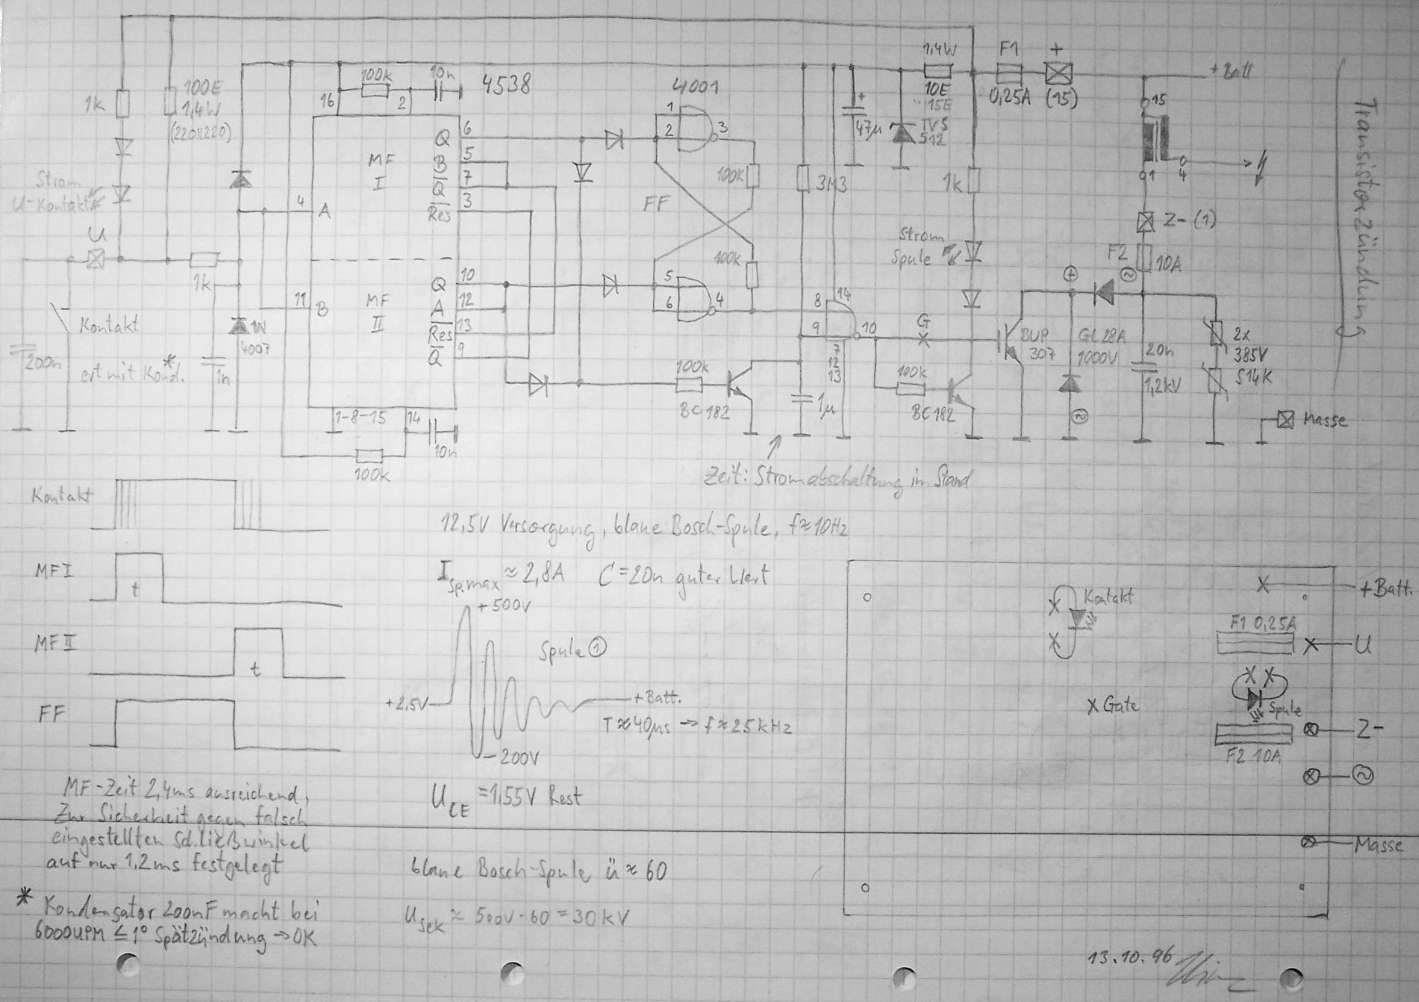 Transistorzündung
1k
100E
1,4W
(220||220)
Strom
U-Kontakt
U
1k
Kontakt
200n
erst mit Kond.*
1n
1N
4007
100k
10n
4538
16
2
MF
I
Q
6
B
5
Q
7
Res
3
4
A
11
B
MF
II
Q
10
A
12
Res
13
Q
9
1-8-15
14
10n
100k
4001
1
2
3
100k
FF
100k
5
6
4
100k
BC182
3M3
47µ
+
1,4W
10E
15E
TVS
512
F1
0,25A
+
(15)
+Batt
15
1
4
Z-(1)
F2
10A
1k
Strom
Spule
8
14
9
10
7
12
13
G
1µ
100k
BC182
BUP
307
GL28A
1000V
20n
1,2kV
2x
385V
S14K
Masse
Zeit: Stromabschaltung in Stand
Kontakt
MF I
t
MF II
t
FF
12,5V Versorgung, blaue Bosch-Spule, f≈10Hz
I Sp.max ≈ 2,8A C=20n guter Wert
+500V
Spule ①
+2,5V
+Batt.
T≈40µs → f≈25kHz
-200V
U CE =1,55V Rest
blaue Bosch-Spule ü≈60
U Sek ≈ 500V·60=30kV
MF-Zeit 2,4ms ausreichend,
Zur Sicherheit gegen falsch
eingestellten Schließwinkel
auf nur 1,2ms festgelegt
* Kondensator 200nF macht bei
6000UPM ≤1° Spätzündung → OK
Kontakt
+Batt.
F1 0,25A
U
Gate
Spule
Z-
F2 10A
Masse
13.10.96